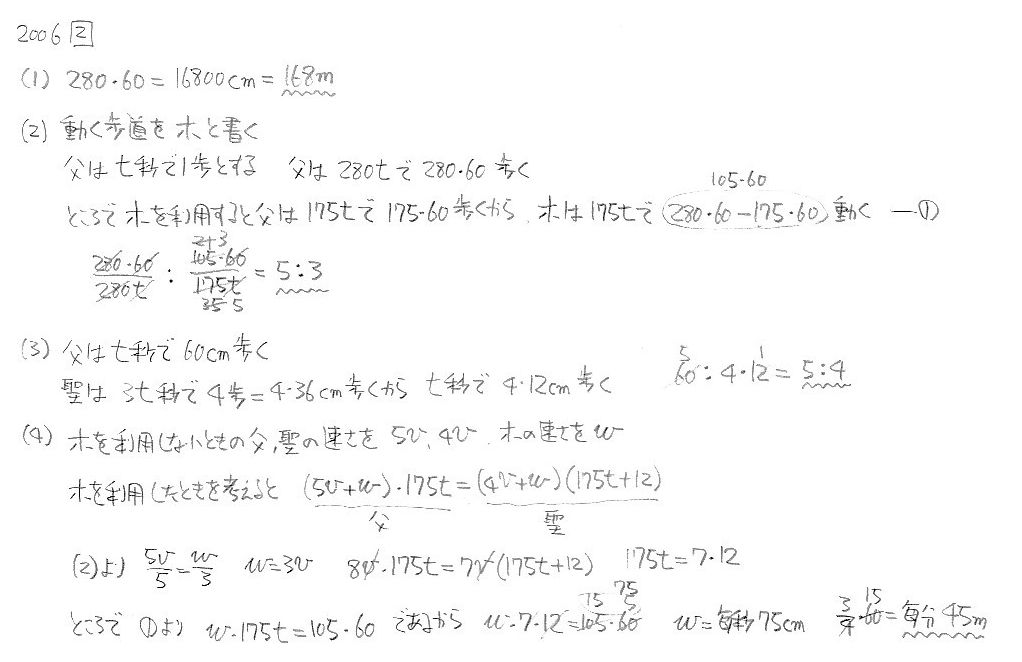 2006 ②
(1) 280・60 = 16800cm = 168m
(2) 動く歩道を ホ と書く
父は t秒で1歩とする 父は 280t で 280・60 歩く
105・60
ところで ホを利用すると父は 175t で 175・60 歩くから、ホは 175t で (280・60-175・60) 動く ―①
280・60/280t : 105・60/175t = 5:3
(3) 父は t秒で 60cm 歩く
聖は 3t秒で 4歩=4・36cm 歩くから t秒で 4・12cm 歩く
60 : 4・12 = 5:4
(4) ホを利用しないときの父,聖の速さを 5v, 4v、ホの速さを w
ホを利用したときを考えると (5v+w)・175t = (4v+w)(175t+12)
父 聖
(2)より 5v/5 = w/3 w=3v 8v・175t = 7v(175t+12) 175t = 7・12
ところで ①より w・175t = 105・60 であるから w・7・12 = 105・60 w = 毎秒75cm 3/4・60 = 毎分 45m